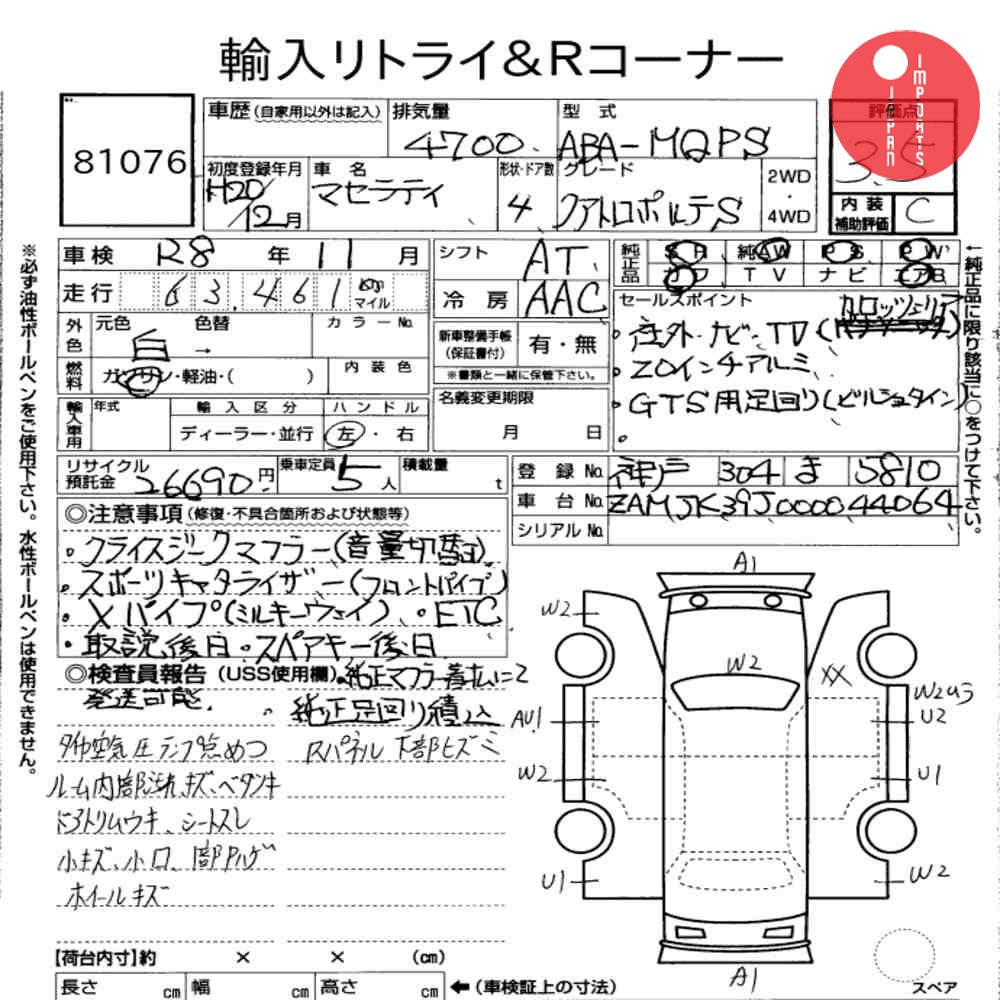 輸入リトライ&Rコーナー
JAPAN IMPORTS
81076
車歴(自家用以外は記入)
排気量 4700
型式 ABA-MQPS
評価点 3.5
初度登録年月 H20/12月
車名 マセラティ
形状・ドア数 4
グレード クアトロポルテS
2WD・4WD
内装補助評価 C
車検 R8年 11月
シフト AT
純正品 SR 純AW PS PW
カワ TV ナビ エアB
走行 63,461 km マイル
冷房 AAC
セールスポイント
外色 元色 白 → 色替
カラーNo.
新車整備手帳(保証書付) 有・無
※書類と一緒に保管下さい。
・社外ナビ・TV(カロッツェリア)
・20インチアルミ
・GTS用足回り(ビルシュタイン)
燃料 ガソリン・軽油・( )
内装色
名義変更期限 月 日
輸入車用 年式
輸入区分 ディーラー・並行
ハンドル 左・右
リサイクル預託金 26690円
乗車定員 5人
積載量 t
登録No. 神戸 304 ま 5810
車台No. ZAMJK39J000044064
シリアルNo.
◎注意事項(修復・不具合箇所および状態等)
・クライスジークマフラー(音量切替可)
・スポーツキャタライザー(フロントパイプ)
・Xパイプ(ミルキーウェイ)・ETC
・取説後日・スペアキー後日
◎検査員報告(USS使用欄)
・純正マフラー着払いにて
発送可能。
・純正足回り積込
タイヤ空気圧ランプ点めつ
Rパネル下部ヒズミ
ルーム内部汚れ、キズ、ベタツキ
ドアトリムウキ、シートスレ
小キズ、小凹、一部ハゲ
ホイールキズ
A1
W2
W2
XX
W2U3
U2
AU1
W2
U1
U1
W2
A1
スペア
【荷台内寸】約 × × (cm)
長さ cm 幅 cm 高さ cm ←(車検証上の寸法)
※必ず油性ボールペンをご使用下さい。水性ボールペンは使用できません。
←純正品に限り該当に○をつけて下さい。